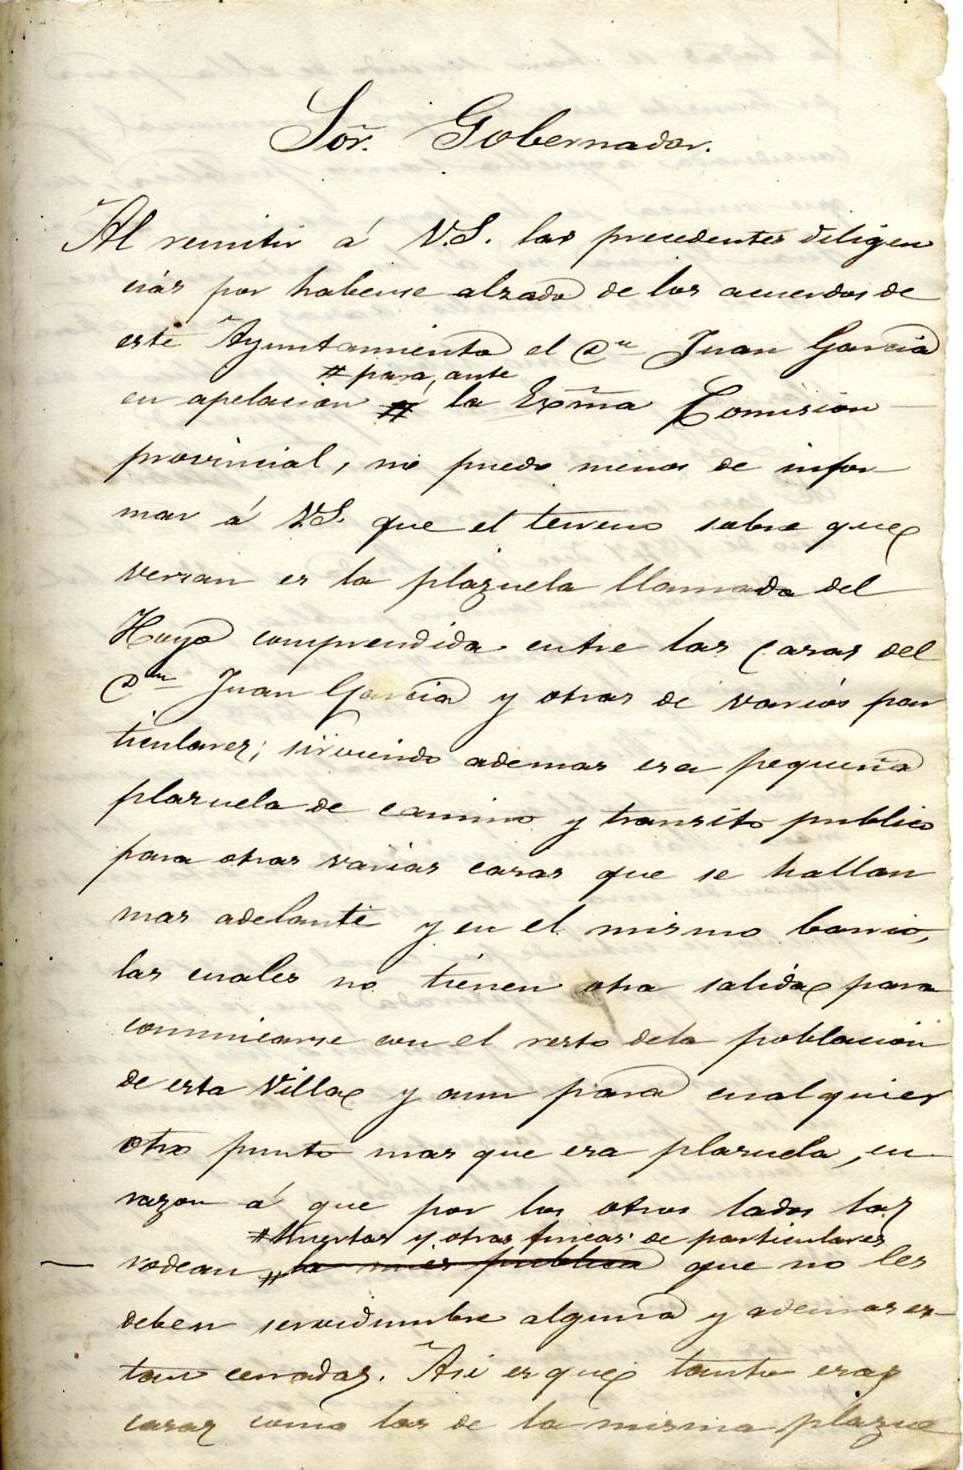 Sor. Gobernador.
Al remitir á V.S. las precedentes diligen
cias por haberse alzado de los acuerdos de
este Ayuntamiento el Dn Juan Garcia
# para, ante
en apelacion # la Exma Comision
provincial, no puedo menos de infor
mar á V.S. que el terreno sobre que
versan es la plazuela llamada del
Hoyo comprendida entre las casas del
Dn Juan Garcia y otras de varios par
ticulares; sirviendo ademas esa pequeña
plazuela de camino y transito publico
para otras varias casas que se hallan
mas adelante y en el mismo barrio,
las cuales no tienen otra salida para
comunicarse con el resto dela poblacion
de esta Villa y aun para cualquier
otro punto mas que esa plazuela, en
razon á que por los otros lados las
# huertas y otras fincas de particulares
rodean # la mies publica que no les
deben servidumbre alguna y ademas es-
tan cerradas. Asi es que tanto esas
casas como las de la misma plazue